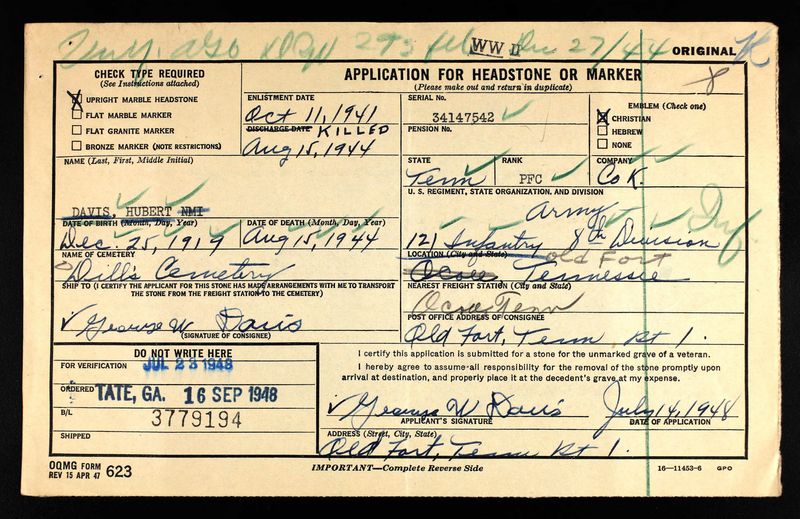 WW II Dec 27/44 ORIGINAL K
CHECK TYPE REQUIRED
(See Instructions attached)
X UPRIGHT MARBLE HEADSTONE
FLAT MARBLE MARKER
FLAT GRANITE MARKER
BRONZE MARKER (NOTE RESTRICTIONS)
APPLICATION FOR HEADSTONE OR MARKER
(Please make out and return in duplicate)
ENLISTMENT DATE
Oct 11, 1941
DISCHARGE DATE KILLED
Aug 15, 1944
SERIAL No.
34147542
PENSION No.
EMBLEM (Check one)
X CHRISTIAN
HEBREW
NONE
NAME (Last, First, Middle Initial)
DAVIS, HUBERT NMI
STATE
Tenn
RANK
PFC
COMPANY
Co K.
U. S. REGIMENT, STATE ORGANIZATION, AND DIVISION
Army
121 Infantry 8th Division Inf
DATE OF BIRTH (Month, Day, Year)
Dec. 25, 1919
DATE OF DEATH (Month, Day, Year)
Aug 15, 1944
NAME OF CEMETERY
Dill's Cemetery
LOCATION (City and State) Old Fort
Ocoee Tennessee
SHIP TO (I CERTIFY THE APPLICANT FOR THIS STONE HAS MADE ARRANGEMENTS WITH ME TO TRANSPORT
THE STONE FROM THE FREIGHT STATION TO THE CEMETERY)
George W Davis
(SIGNATURE OF CONSIGNEE)
NEAREST FREIGHT STATION (City and State)
Ocoe Tenn
POST OFFICE ADDRESS OF CONSIGNEE
Old Fort, Tenn Rt 1.
DO NOT WRITE HERE
FOR VERIFICATION JUL 23 1948
ORDERED TATE, GA. 16 SEP 1948
B/L 3779194
SHIPPED
I certify this application is submitted for a stone for the unmarked grave of a veteran.
I hereby agree to assume all responsibility for the removal of the stone promptly upon
arrival at destination, and properly place it at the decedent's grave at my expense.
George W Davis July 14, 1948
APPLICANT'S SIGNATURE DATE OF APPLICATION
ADDRESS (Street, City, State)
Old Fort, Tenn Rt 1.
OQMG FORM
REV 15 APR 47 623
IMPORTANT—Complete Reverse Side
16—11453-6 GPO